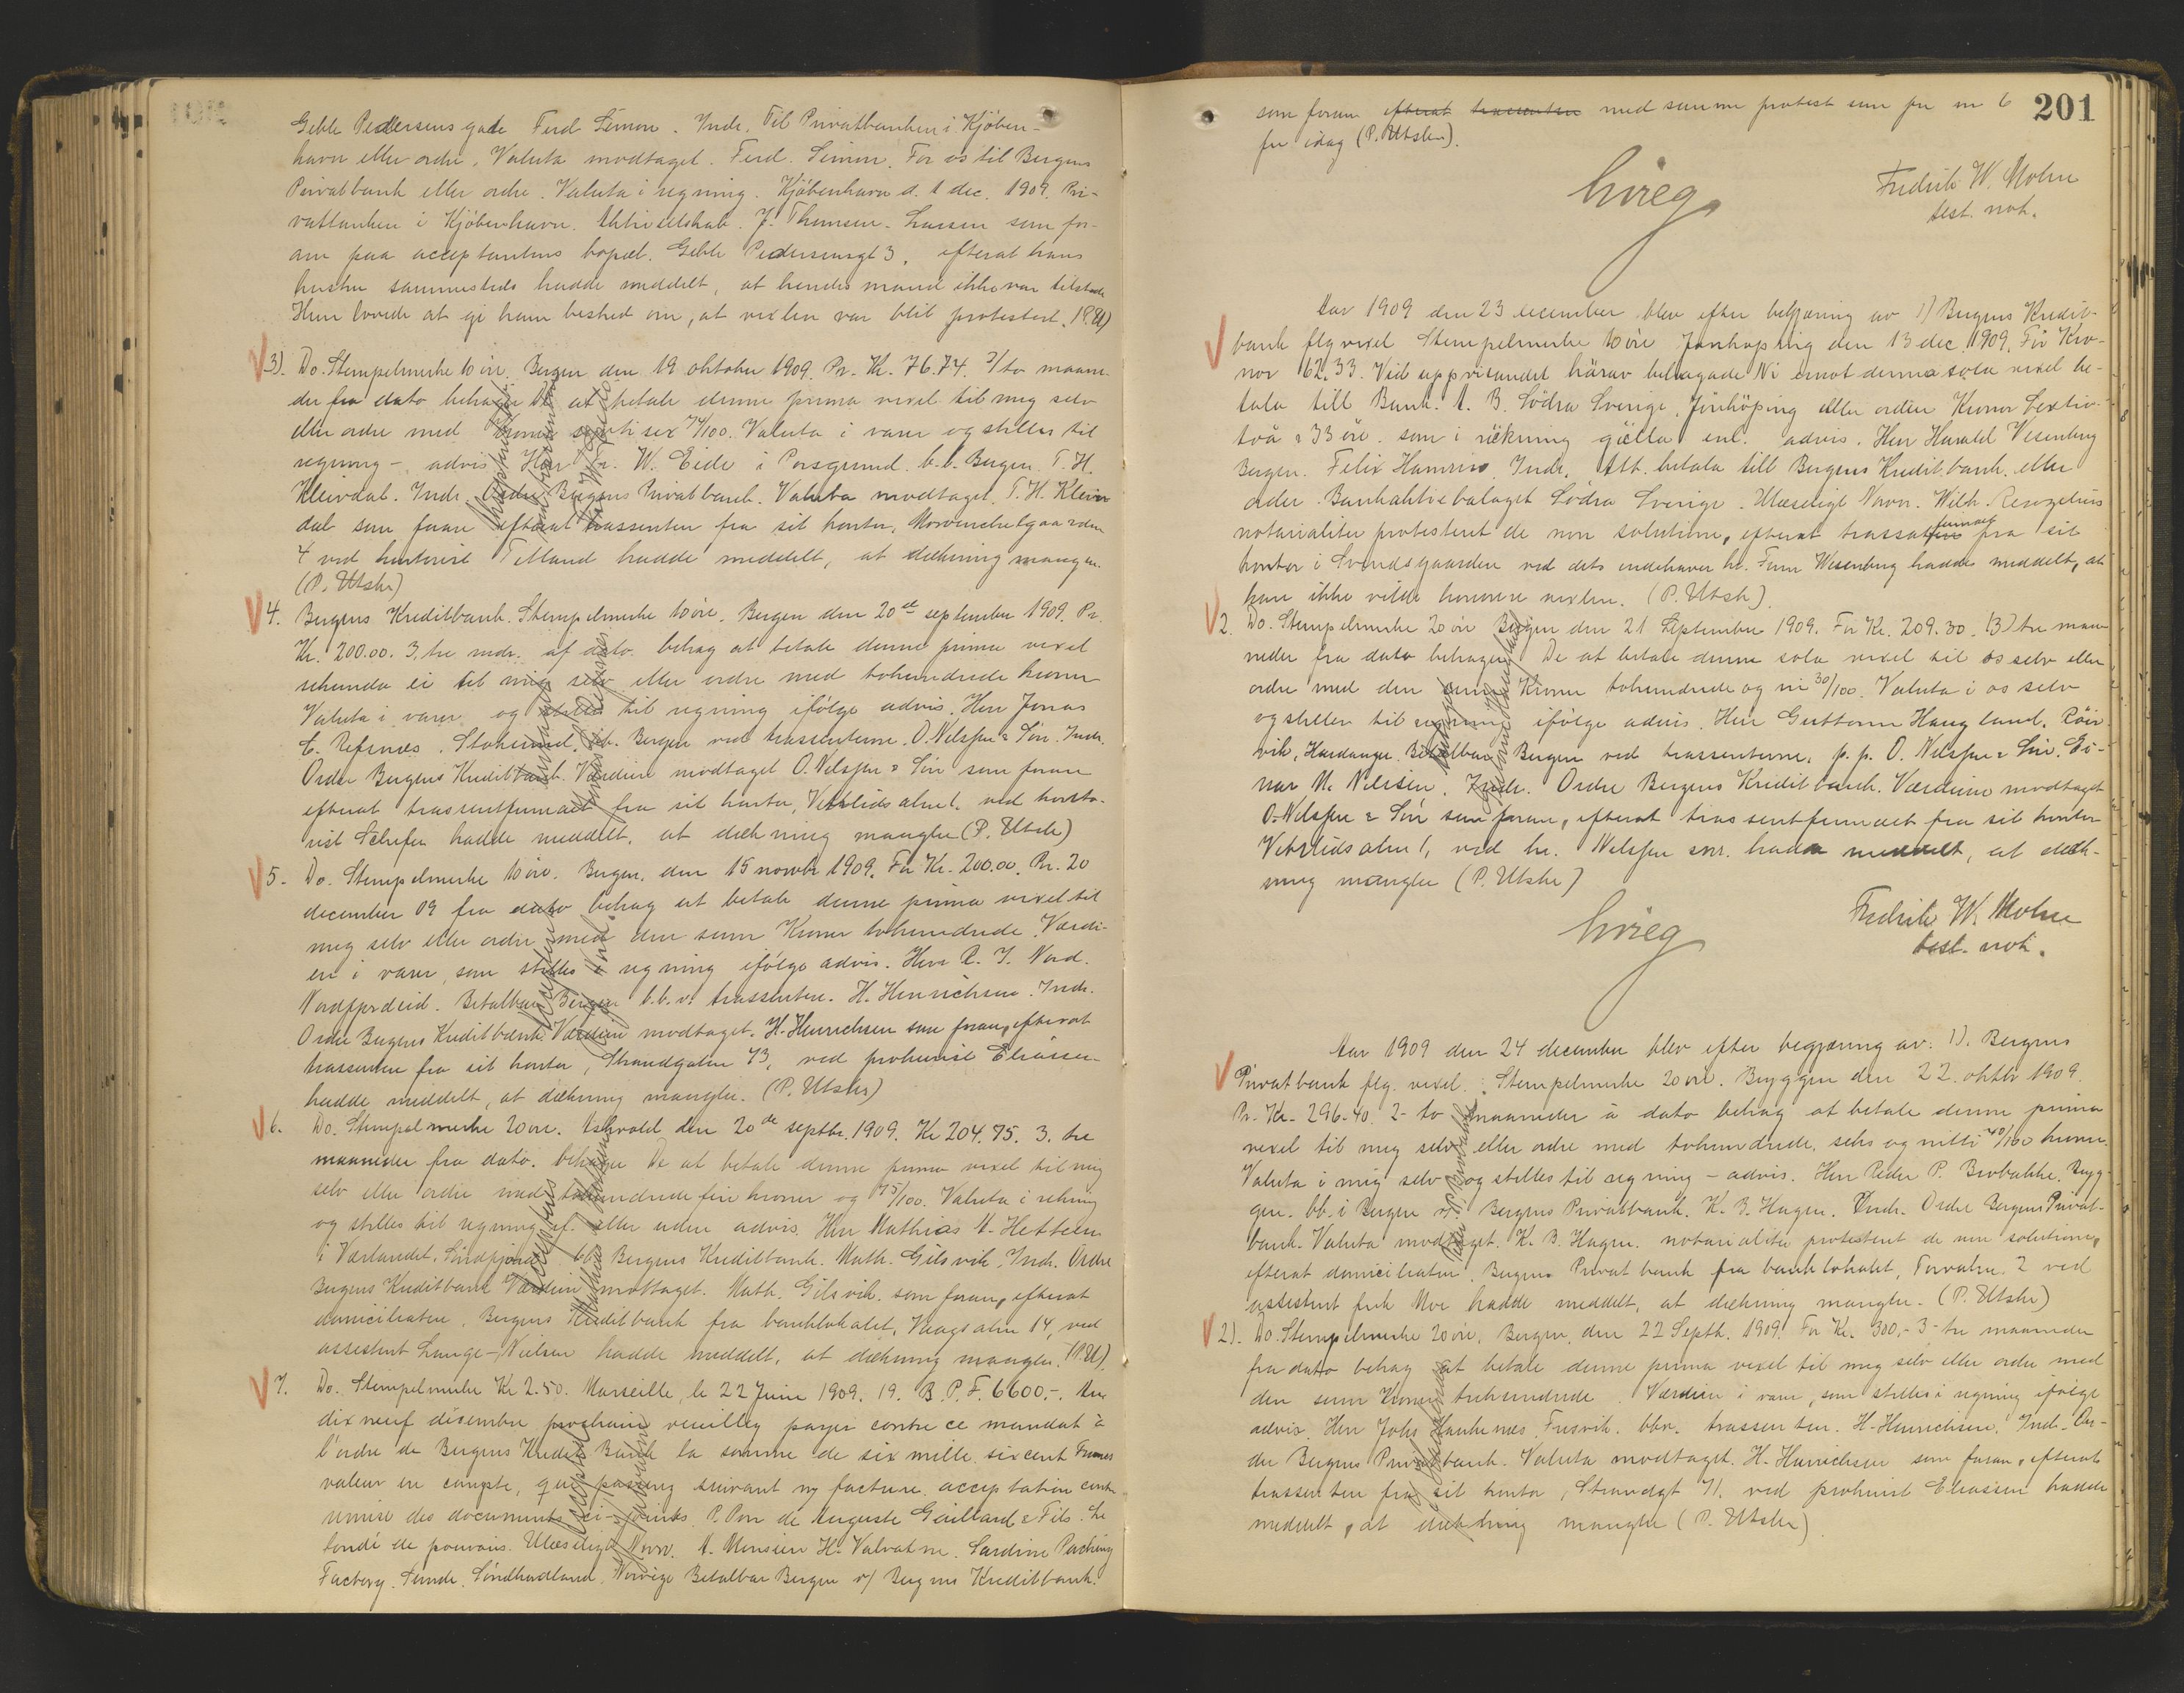 Geble Pedersens gade Ferd Simon. Indr. Til Privatbanken i Kjöben-
havn eller ordre. Valuta modtaget. Ferd. Simon. For os til Bergens
Privatbank eller ordre. Valuta i regning. Kjöbenhavn d. 1 dec. 1909. Pri-
vatbanken i Kjöbenhavn. Aktieselskab. J. Thomsen. Larsen som for-
an paa acceptantens bopæl. Geble Pedersensgt 3, efterat hans
hustru sammesteds hadde meddelt, at hendes mand ikke var tilstede
Hun lovede at gi ham besked om, at vexlen var blit protestert. (P.U)
3). Do. Stempelmerke 10 öre. Bergen den 19 oktober 1909. Pr. Kr. 76.74. 2/to maane-
der fra dato behager De at betale denne prima vexel til mig selv
eller ordre med Kroner sytti sex 74/100. Valuta i varer og stilles til
regning - advis Herr Fr. W. Eide i Porsgrund. b.b. Bergen. T. H.
Kleivdal. Indr. Ordre Bergens Privatbank. Valuta modtaget. T. H. Kleiv
dal som foran efterat trassenten fra sit kontor,
4 ved kontorist Tetland hadde meddelt, at dækning mangler.
(P. Utskr)
4. Bergens Kreditbank. Stempelmerke 10 öre. Bergen den 20de september 1909. Pr.
Kr. 200.00. 3, tre mdr. af dato behag at betale denne prima vexel
sekunda ei til mig selv eller ordre med tohundrede kroner
Valuta i varer og stilles til regning ifölge advis. Herr Jonas
E. Refsnes. Stokesund. bb. Bergen ved trassenterne. O. Nilssen & Sön. Indr.
Ordre Bergens Kreditbank. Værdien modtaget O. Nilssen & Sön som foran
efterat trassentfirmaet fra sit kontor, Vetrlidsalm 1. ved konto-
rist hadde meddelt, at dækning mangler (P. Utskr)
5. Do. Stempelmerke 10 öre. Bergen, den 15 novbr 1909. For Kr. 200.00. Pr. 20
december 09 fra dato behag at betale denne prima vexel til
mig selv eller ordre med den sum Kroner tohundrede. Værdi-
en i varer, som stilles i regning ifölge advis. Herr R. J. Nord.
Nordfjordeid. Betalbar Bergen b.b. v. trassenten. H. Hinrichsen. Indr.
Ordre Bergens Kreditbank. Værdien modtaget. H. Hinrichsen som foran, efterat
trassenten fra sit kontor, Strandgaten 73, ved prokurist Eliassen
hadde meddelt, at dækning mangler. (P. Utskr)
6. Do. Stempelmerke 20 öre. Askvold den 20de septbr. 1909. Kr 204.75. 3. tre
maaneder fra dato. behager De at betale denne prima vexel til mig
selv eller ordre med tohundrede fire kroner og 75/100. Valuta i rekning
og stilles til regning if. eller uden advis. Herr Mathias A. Hettelen
i Værlandet. Söndfjord. bb. Bergens Kreditbank. Math. Gilsvik. Indr. Ordre
Bergens Kreditbank Værdien mottaget. Math. Gilsvik. som foran, efterat
domiciliaten, Bergens Kreditbank fra banklokalet, Vaagsalm 14, ved
assistent Lange-Nielsen hadde meddelt, at dækning mangler. (P.U)
7. Do. Stempelmerke Kr 2.50. Marseille, le 22 Juin 1909. 19. B.P.F. 6600.-. Au
dix neuf décembre prochain veuillez payer contre ce mandat à
l'ordre de Bergens Kredit Bank la somme de six mille six cent Francs
valeur en compte, que passerez suivant ny facture. acceptation contre
remise des documents ci-joints. P. Pon de Auguste Gaillard & Fils. Le
fondé de pouvoirs. Ulæseligt Navn. A. Monsieur H. Valvatne. Sardine Packing
Factory. Söndhordland. Norvège Betalbar Bergen v/ Bergens Kreditbank.
201
som foran efterat trassenten med samme protest som for nr 6
for idag (P. Utskr).
Grieg
Fredrik W. Mohn
test. not.
Aar 1909 den 23 december blev efter begjæring av 1) Bergens Kredit-
bank flg vexel Stempelmerke 10 öre Jönköping den 13 dec. 1909. För Kro-
nor 62.33. Vid uppvisandet härav behagade Ni emot denna sola vexel be-
tala till Bank. A. B. Södra Sverige, Jönköping eller order Kronor Sextio-
två & 33 öre. som i räkning gälla enl. advis. Herr Harald Wesenberg
Bergen. Felix Hamrin. Indr. Att betala till Bergens Kreditbank. eller
order. Bankaktiebolaget Södra Sverige. Ulæseligt Navn. Wilh. Renzelius
notarialiter protestert de non solutione, efterat trassatfirmaet fra sit
kontor i Svendsgaarden ved dets indehaver hr. Finn Wesenberg hadde meddelt, at
han ikke vilde honorere vexlen. (P. Utskr).
2. Do. Stempelmerke 20 öre Bergen den 21 September 1909. For Kr. 209.30. (3) tre maa-
neder fra dato behager De at betale denne sola vexel til os selv eller
ordre med den sum Kroner tohundrede og ni 30/100. Valuta i os selv
og stilles til regning ifölge advis. Herr Guttorm Haugland. Röir-
vik, Hardanger. Betalbar Bergen ved trassenterne. p. p. O. Nilssen & Sön. Ei-
nar M. Nilssen. Indr. Ordre Bergens Kreditbank. Værdien modtaget
O. Nilssen & Sön som foran, efterat trassentfirmaet fra sit kontor
Vetrlidsalm 1, ved hr. Nilssen snr. hadde meddelt, at dæk-
ning mangler (P. Utskr)
Grieg
Fredrik W. Mohn
test. not.
Aar 1909 den 24 december blev efter begjæring av: 1). Bergens
Privatbank flg. vexel. Stempelmerke 20 öre. Bryggen den 22. oktbr 1909.
Pr. Kr. 296.40. 2- to maaneder à dato behag at betale denne prima
vexel til mig selv eller ordre med tohundrede, seks og nitti 40/100 kroner.
Valuta i mig selv og stilles til regning - advis. Herr Peder P. Brobakke. Bryg-
gen. bb. i Bergen v/ Bergens Privatbank. K. B. Hagen. Indr. Ordre Bergens Privat-
bank. Valuta modtaget. K. B. Hagen. notarialiter protestert de non solutione,
efterat domiciliaten, Bergens Privatbank fra banklokalet, Torvalm. 2 ved
assistent frk Moe hadde meddelt, at dækning mangler. (P. Utskr)
2). Do. Stempelmerke 20 öre, Bergen, den 22 Septb. 1909. For Kr. 300,- 3- tre maaneder
fra dato behag at betale denne prima vexel til mig selv eller ordre med
den sum Kroner trehundrede. Værdien i varer, som stilles i regning ifölge
advis. Herr Johs Hankenæs, bbr. trassenten. H. Hinrichsen. Ind. Or-
dre Bergens Privatbank. Valuta modtaget. H. Hinrichsen som foran, efterat
trassenten fra sit kontor, Strandgt 71, ved prokurist Eliassen hadde
meddelt, at dækning mangler (P. Utskr)